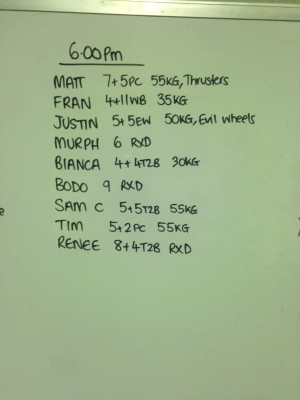 6.00pm
MATT 7+5PC 55KG, Thrusters
FRAN 4+11WB 35KG
JUSTIN 5+5EW 50KG, Evil wheels
MURPH 6 RXD
BIANCA 4+4T2B 30KG
BODO 9 RXD
SAM C 5+5T2B 55KG
TIM 5+2PC 55KG
RENEE 8+4T2B RXD